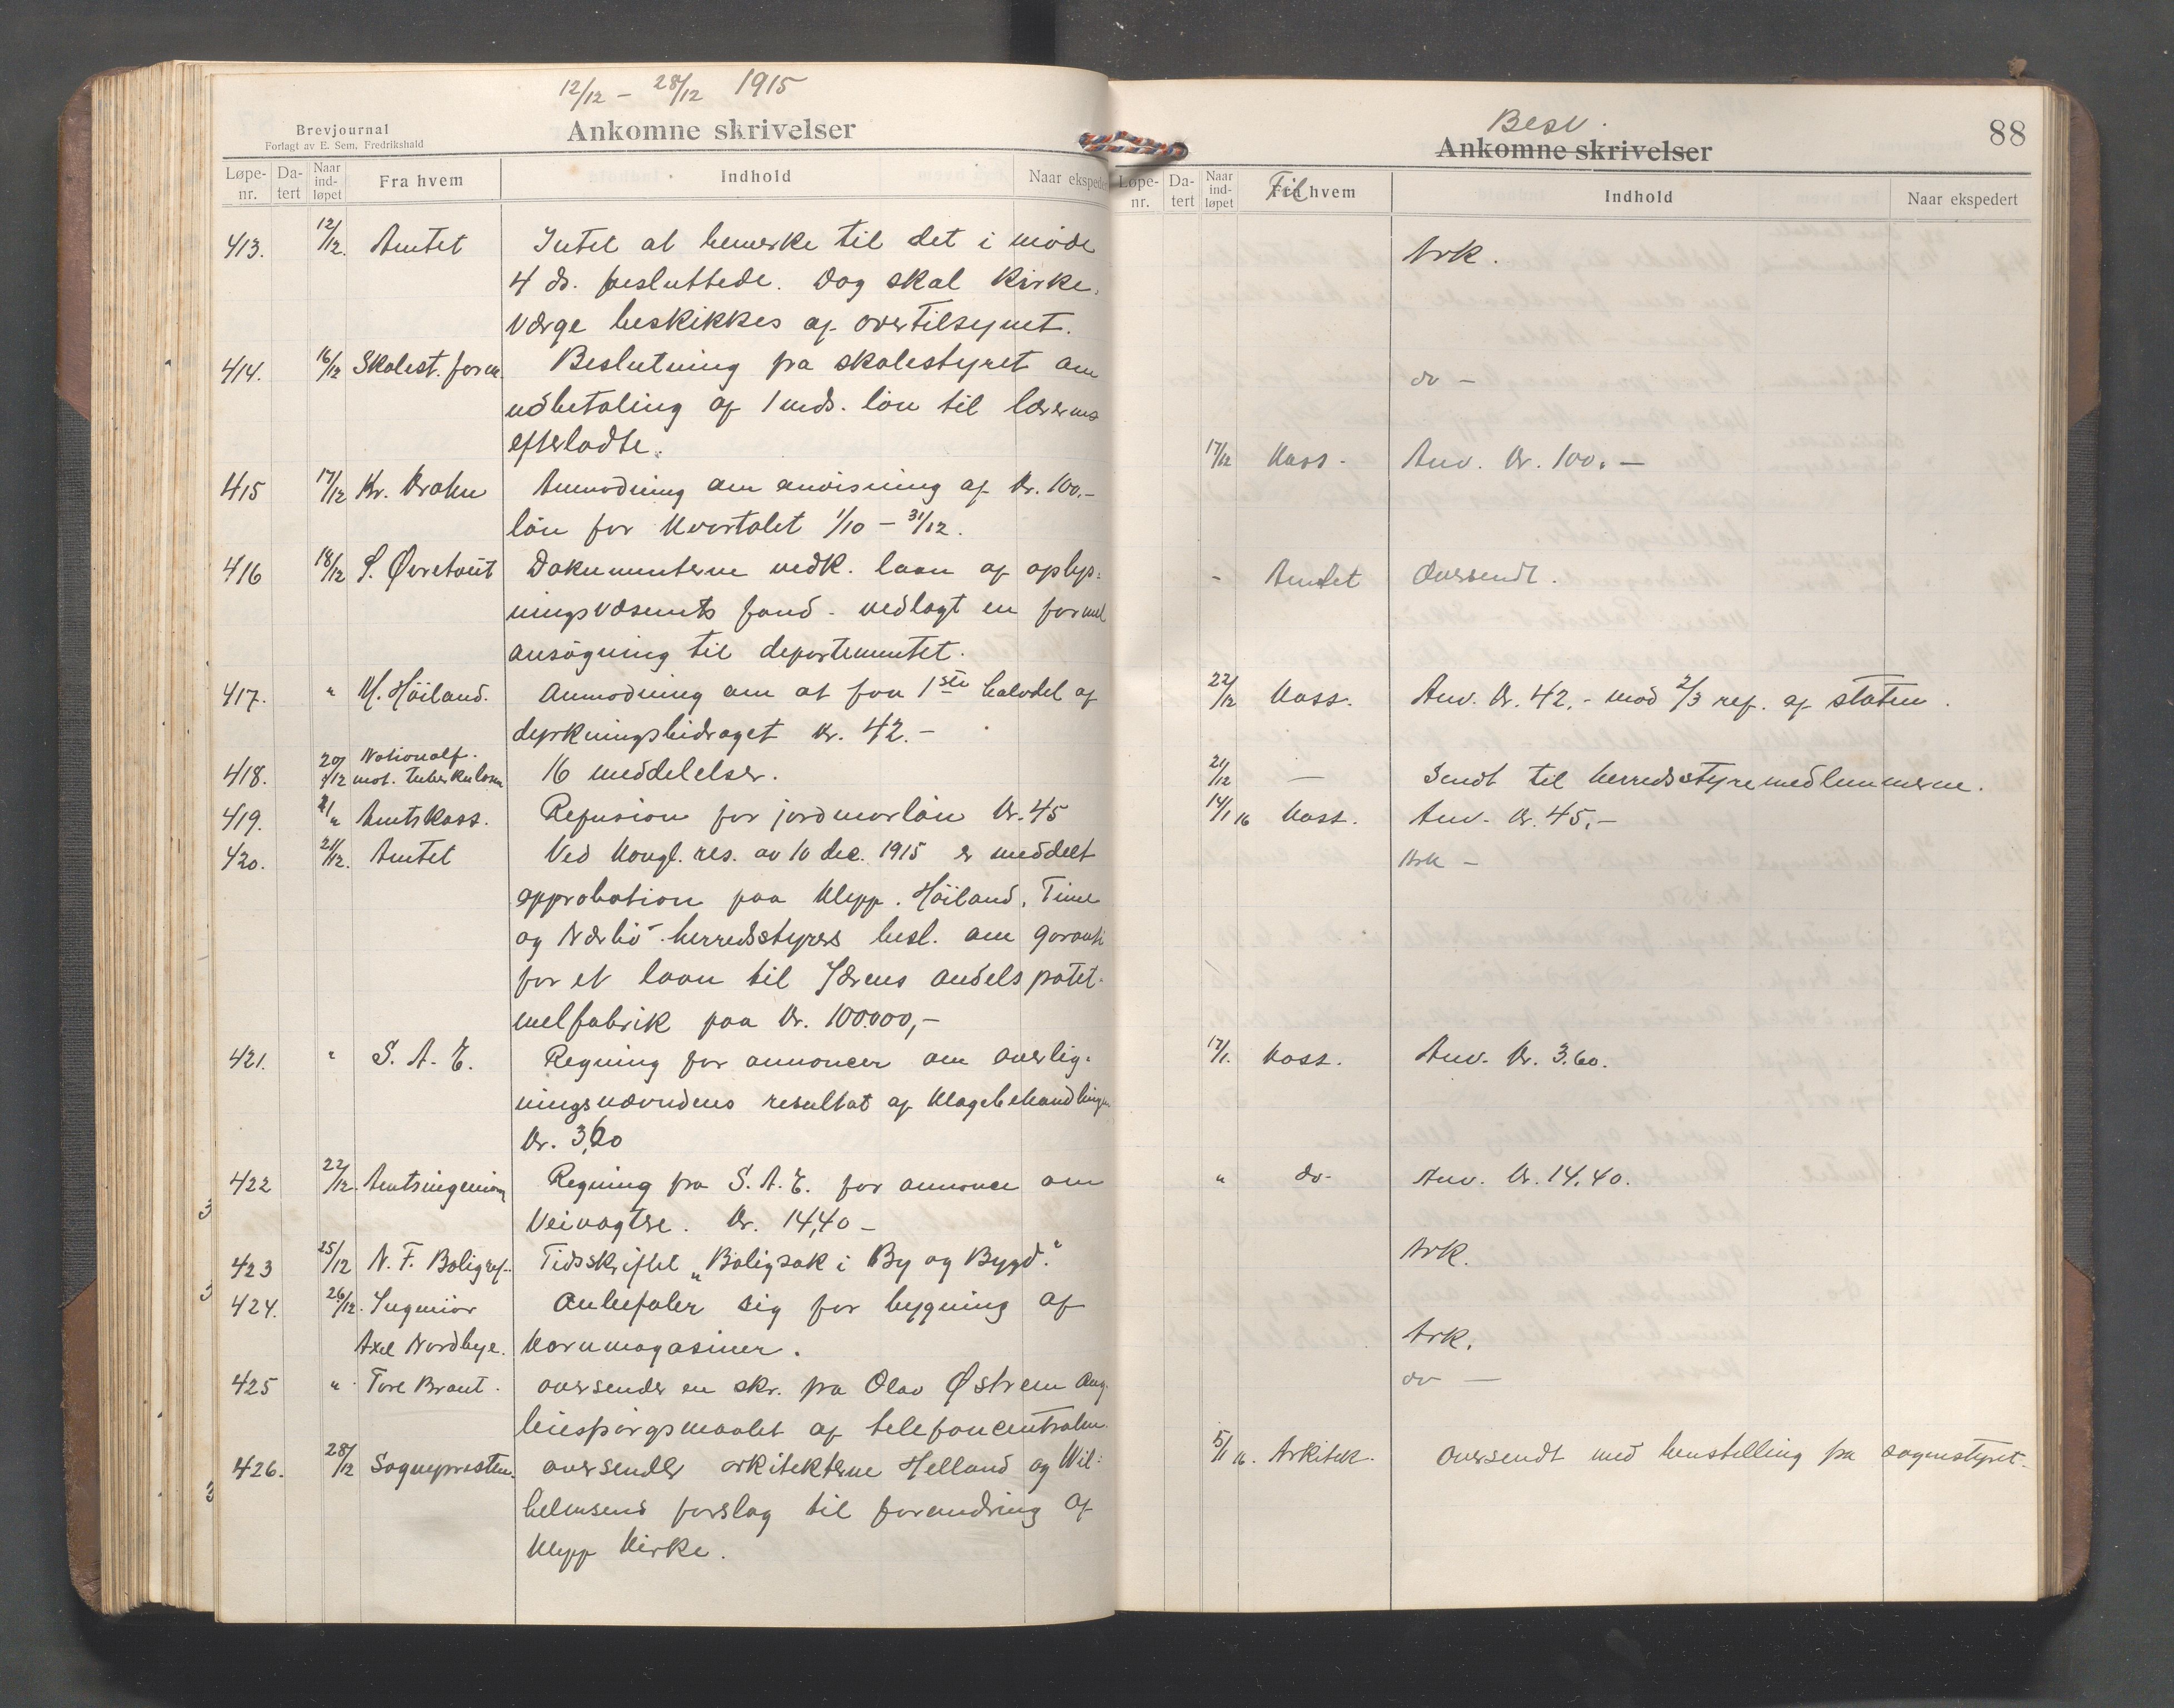 12/12 – 28/12 1915
Brevjournal
Forlagt av E. Sem, Fredrikshald
Ankomne skrivelser
Løpe-nr. Da-tert Naar ind-løpet Fra hvem Indhold Naar ekspedert
413. 12/12. Amtet Intet at bemerke til det i møde
4 ds. besluttede. Dog skal Kirke-
værge beskikkes af overtilsynet.
414. 16/12 Skolest. form. Beslutning fra skolestyret om
udbetaling af 1 mds. løn til lærerens
efterladte.
415 17/12 Kr. Krohn Anmodning om anvisning af Kr. 100.–
løn for Kvartalet 1/10 – 31/12.
416 18/12 S. Øvretveit Dokumenterne vedk. laan af oplys:
ningsvæsenets fond - vedlagt en formel
ansøgning til departementet.
417. " M. Höiland. Anmodning om at faa 1ste halvdel af
dyrkningsbidraget Kr. 42.–
418. 20/12 Nationalf.
mot. tuberkulosen 16 meddelelser.
419. 21 " Amtskass. Refusion for jordmorløn Kr. 45
420. 21/12. Amtet Ved Kongl. res. av 10 dec. 1915 er meddelt
approbation paa Klepp. Höiland, Time
og Nærbö herredsstyrers besl. om garanti
for et laan til Jærens andels potet-
melfabrik paa Kr. 100.000,–
421. " S. A. E. Regning for annoncer om overlig-
ningsnævndens resultat af Klagebehandlingen
Kr. 3,60
422 22/12. Amtsingeniøren Regning fra S. A. E. for annonce om
Veivogtere. Kr. 14,40 –
423 25/12 N. F. Boligref. Tidsskriftet „Boligsak i By og Bygd."
424. 26/12. Ingeniør Anbefaler sig for bygning af
Axel Nordbye. Kornmagasiner.
425 " Tore Braut. oversender en skr. fra Olav Østrem ang.
leiespørgsmaalet af telefoncentralen.
426. 28/12 Sognepresten. oversender arkitekterne Helland og Wil:
helmsens forslag til forandring af
Klepp Kirke.
88
Besv.
Ankomne skrivelser
Løpe-nr. Da-tert Naar ind-løpet Til Fra hvem Indhold Naar ekspedert
Ark.
do –
17/12 Kass. Anv. Kr. 100.–
- Amtet Oversendt.
22/12 Kass. Anv. Kr. 42.- mod 2/3 ref. af staten.
21/12 — Sendt til herredsstyremedlemmerne.
14/1 16 Kass. Anv. Kr. 45.–
Ark –
17/1. Kass. Anv. Kr. 3.60.
" do- Anv. Kr. 14.40.
Ark.
Ark.
do —
5/1 16. Arkitek. Oversendt med henstilling fra sognestyret.